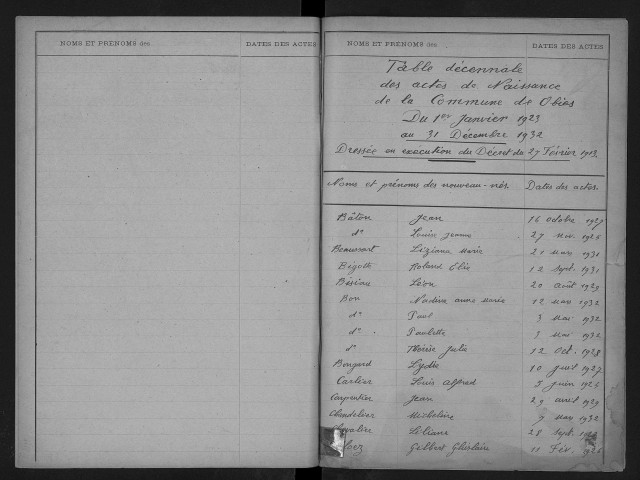 NOMS ET PRÉNOMS des
DATES DES ACTES
NOMS ET PRÉNOMS des
DATES DES ACTES
Table décennale
des actes de Naissance
de la Commune de Obies
Du 1er Janvier 1923
au 31 Décembre 1932
Dressée en exécution du Décret du 27 Février 1913
Noms et prénoms des nouveau-nés Dates des actes
Bâton Jean 16 octobre 1927
do Louise Jeanne 27 nov. 1926
Beaussart Liziane Marie 21 mars 1931
Bigoth Roland Elie 12 sept. 1931
Léon 20 août 1929
Bon Nadine Anne Marie 12 mars 1932
do Paul 3 mai 1932
do Paulette 3 mai 1932
do Thérèse Julia 12 Oct. 1928
Bongard Lydie 10 1927
Cartier Louis Alfred 5 juin 1926
Carpentier Jean 29 avril 1929
Chandelier Micheline 7 mars 1932
Chevalier Liliane 28 sept.
Gilbert Ghislain 11 Fév.